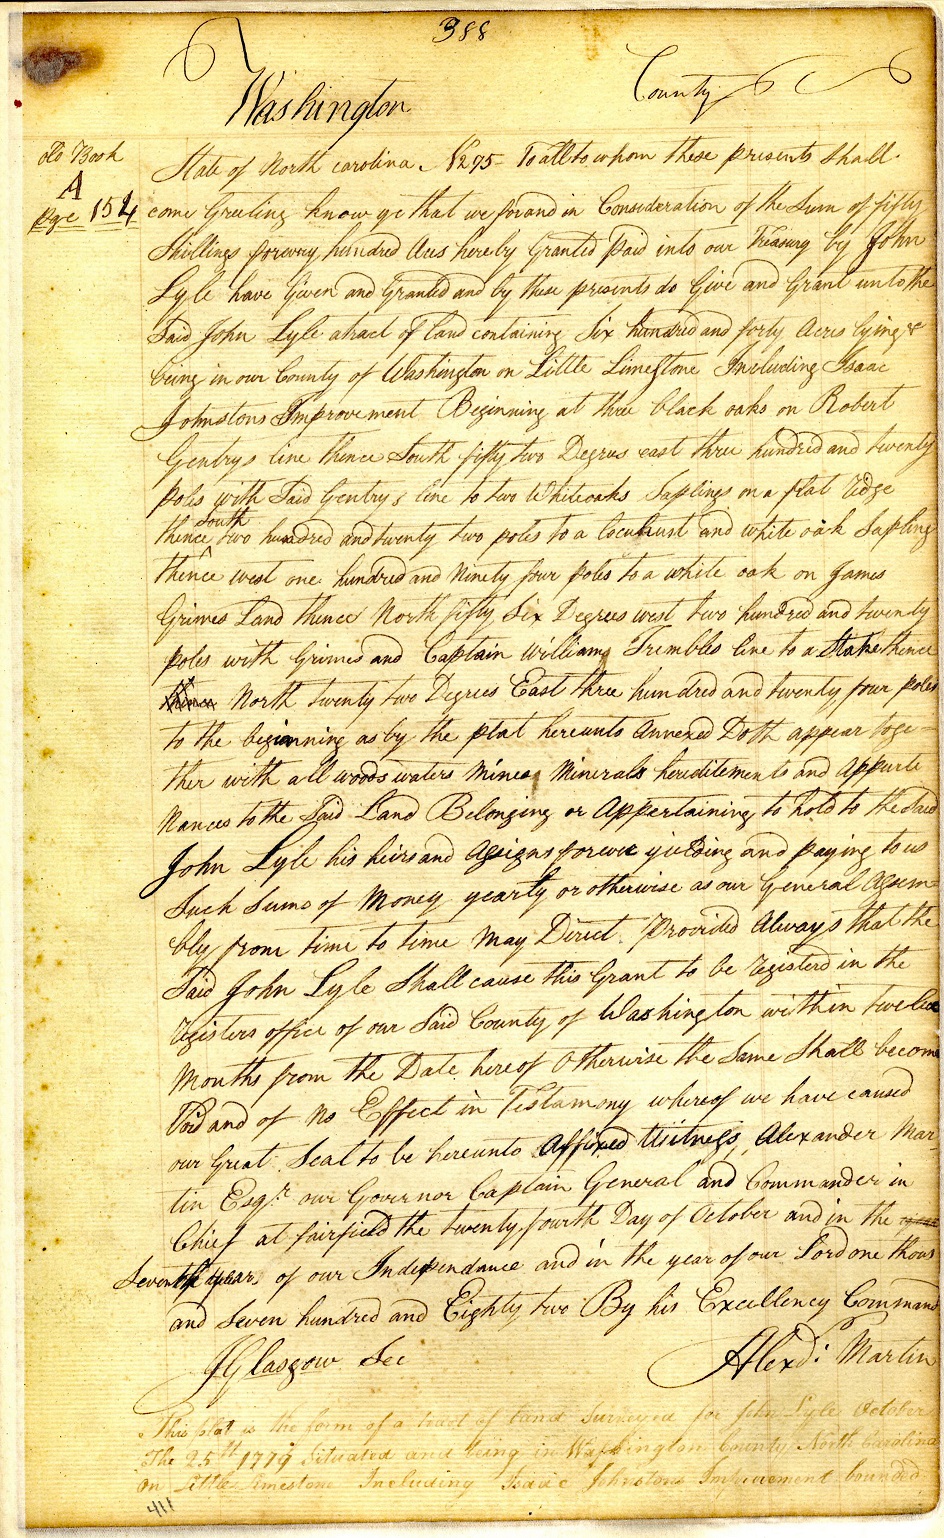 388
Washington County
old Book
A
Page 154
State of North carolina. N 275 - To all to whom these presents Shall
come Greeting know ye that we for and in Consideration of the Sum of fifty
Shillings for every hundred Acres hereby Granted paid into our Treasury by John
Lyle have Given and Granted and by these presents do Give and Grant unto the
Said John Lyle atract of land containing Six hundred and forty Acres lying &
being in our County of Washington on Little Limestone Including Isaac
Johnstons Improvement Beginning at three black oaks on Robert
Gentrys line thence South fifty two Degrees east three hundred and twenty
poles with Said Gentrys line to two Whiteoaks Saplings on a flat Ridge
South
thence two hundred and twenty two poles to a locust and white oak Sapling
thence west one hundred and Ninety four poles to a white oak on James
Grimes Land thence North fifty Six Degrees west two hundred and twenty
poles with Grimes and Captain William Trembles line to a Stake thence
North twenty two Degrees East three hundred and twenty four poles
to the beginning as by the plat hereunto Annexed Doth appear toge-
ther with all woods waters Mines Minerals hereditements and Appurte
Nances to the Said Land Belonging or Appertaining to hold to the Said
John Lyle his heirs and Assigns forever yielding and paying to us
Such Sums of Money yearly or otherwise as our General Assem=
bly from time to time May Direct. Provided Always that the
Said John Lyle Shall cause this Grant to be Registerd in the
Registers office of our Said County of Washington within twelve
Months from the Date hereof Otherwise the Same Shall become
Void and of No Effect in Testamony whereof we have caused
our Great Seal to be hereunto Affixed Witness, Alexander Mar
tin Esqr. our Governor Captain General and Commander in
Chief at fairfield the twenty fourth Day of October and in the
Seventh year of our Independance and in the year of our Lord one thous
and Seven hundred and Eighty two By his Excellency Command
JGlasgow Sec Alexd: Martin
This plat is the form of a tract of land Surveyed for John Lyle October
The 25th 1779 Situated and being in Washington County North Carolina
On Little Limestone Including Isaac Johnstons Improvement bounded
411